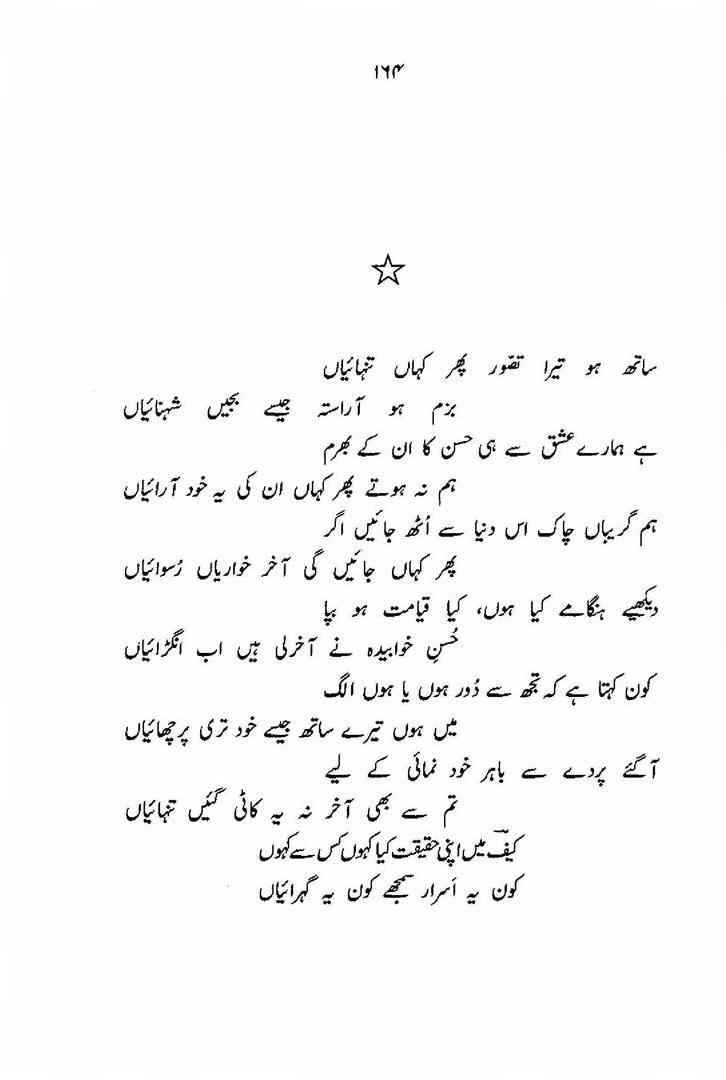 ۱۶۴
ساتھ ہو تیرا تصّور پھر کہاں تنہائیاں
بزم ہو آراستہ جیسے بجیں شہنائیاں
ہے ہمارے عشق سے ہی حسن کا ان کے بھرم
ہم نہ ہوتے پھر کہاں ان کی یہ خود آرائیاں
ہم گریباں چاک اس دنیا سے اُٹھ جائیں اگر
پھر کہاں جائیں گی آخر خواریاں رُسوائیاں
دیکھیے ہنگامے کیا ہوں، کیا قیامت ہو بپا
حُسنِ خوابیدہ نے آخرلی ہیں اب انگڑائیاں
کون کہتا ہے کہ تجھ سے دُور ہوں یا ہوں الگ
میں ہوں تیرے ساتھ جیسے خود تری پرچھائیاں
آگئے پردے سے باہر خود نمائی کے لیے
تم سے بھی آخر نہ یہ کاٹی گئیں تنہائیاں
کیفؔ میں اپنی حقیقت کیا کہوں کس سے کہوں
کون یہ اَسرار سمجھے کون یہ گہرائیاں